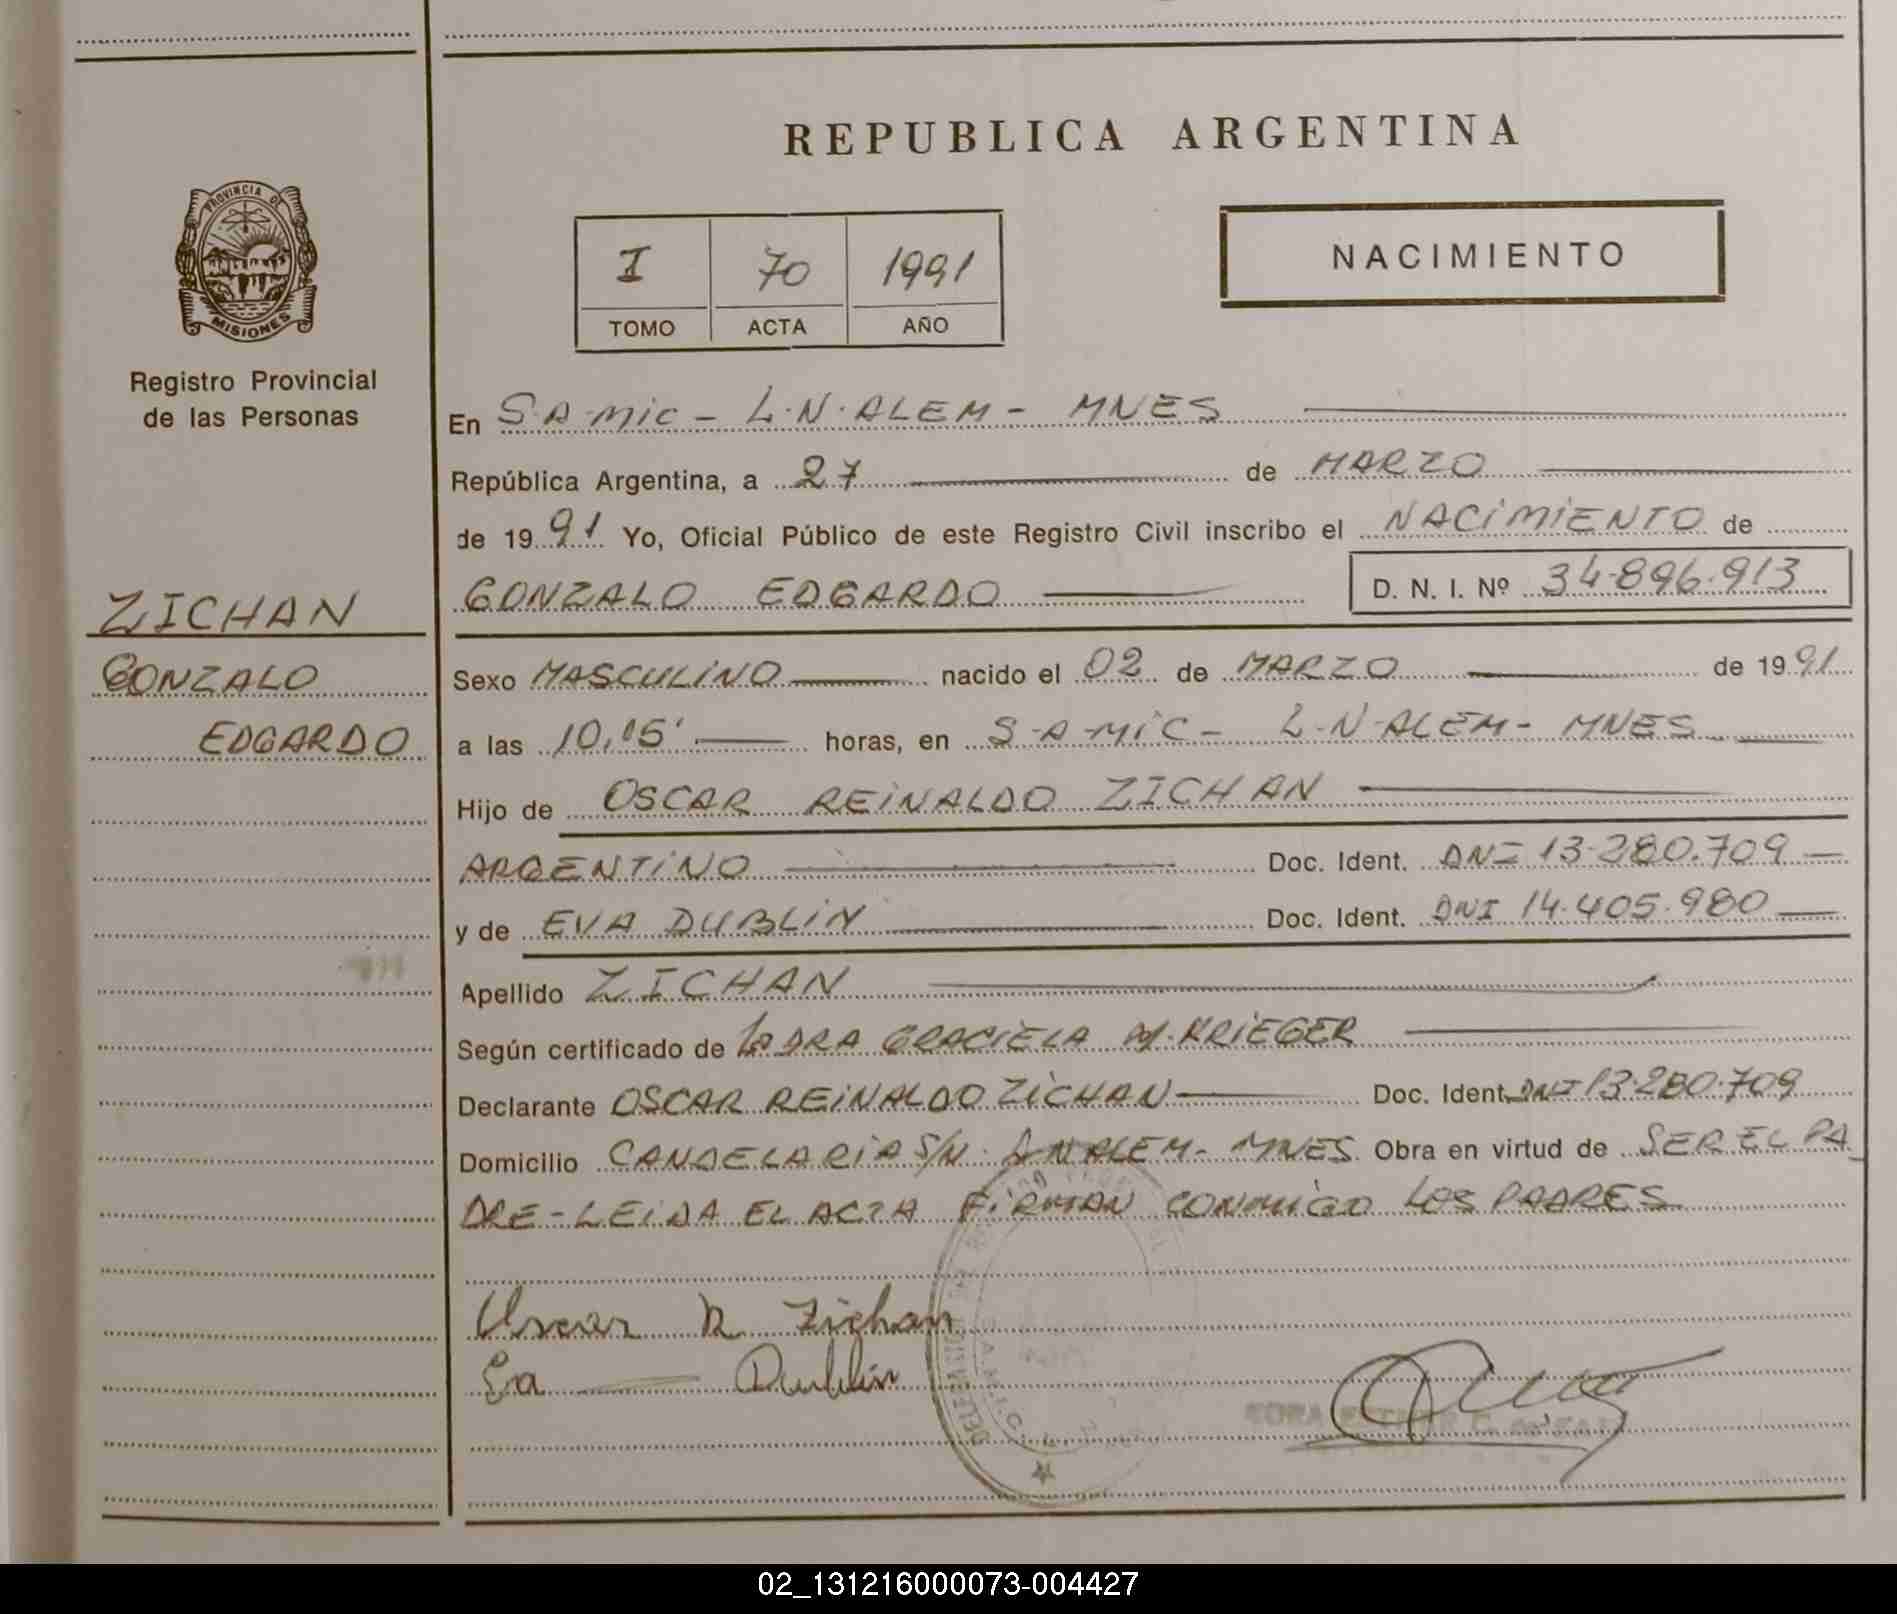 REPUBLICA ARGENTINA
PROVINCIA DE
MISIONES
Registro Provincial
de las Personas
I 70 1991
TOMO ACTA AÑO
NACIMIENTO
En S.A.MIC - L.N.ALEM - MNES
República Argentina, a 27 de MARZO
de 1991 Yo, Oficial Público de este Registro Civil inscribo el NACIMIENTO de
GONZALO EDGARDO D. N. I. Nº 34.896.913
ZICHAN
GONZALO
EDGARDO
Sexo MASCULINO nacido el 02 de MARZO de 1991
a las 10,15' horas, en S-A-MIC - L-N-ALEM - MNES
Hijo de OSCAR REINALDO ZICHAN
ARGENTINO Doc. Ident. DNI 13.280.709
y de EVA DUBLIN Doc. Ident. DNI 14.405.980
Apellido ZICHAN
Según certificado de DRA GRACIELA M. KRIEGER
Declarante OSCAR REINALDO ZICHAN Doc. Ident. DNI 13.280.709
Domicilio CANDELARIA S/N. L.N.ALEM - MNES Obra en virtud de SER EL PA
DRE - LEIDA EL ACTA FIRMAN CONMIGO LOS PADRES
Oscar R. Zichan
Eva Dublin
S.A.M.I.C.
02_131216000073-004427